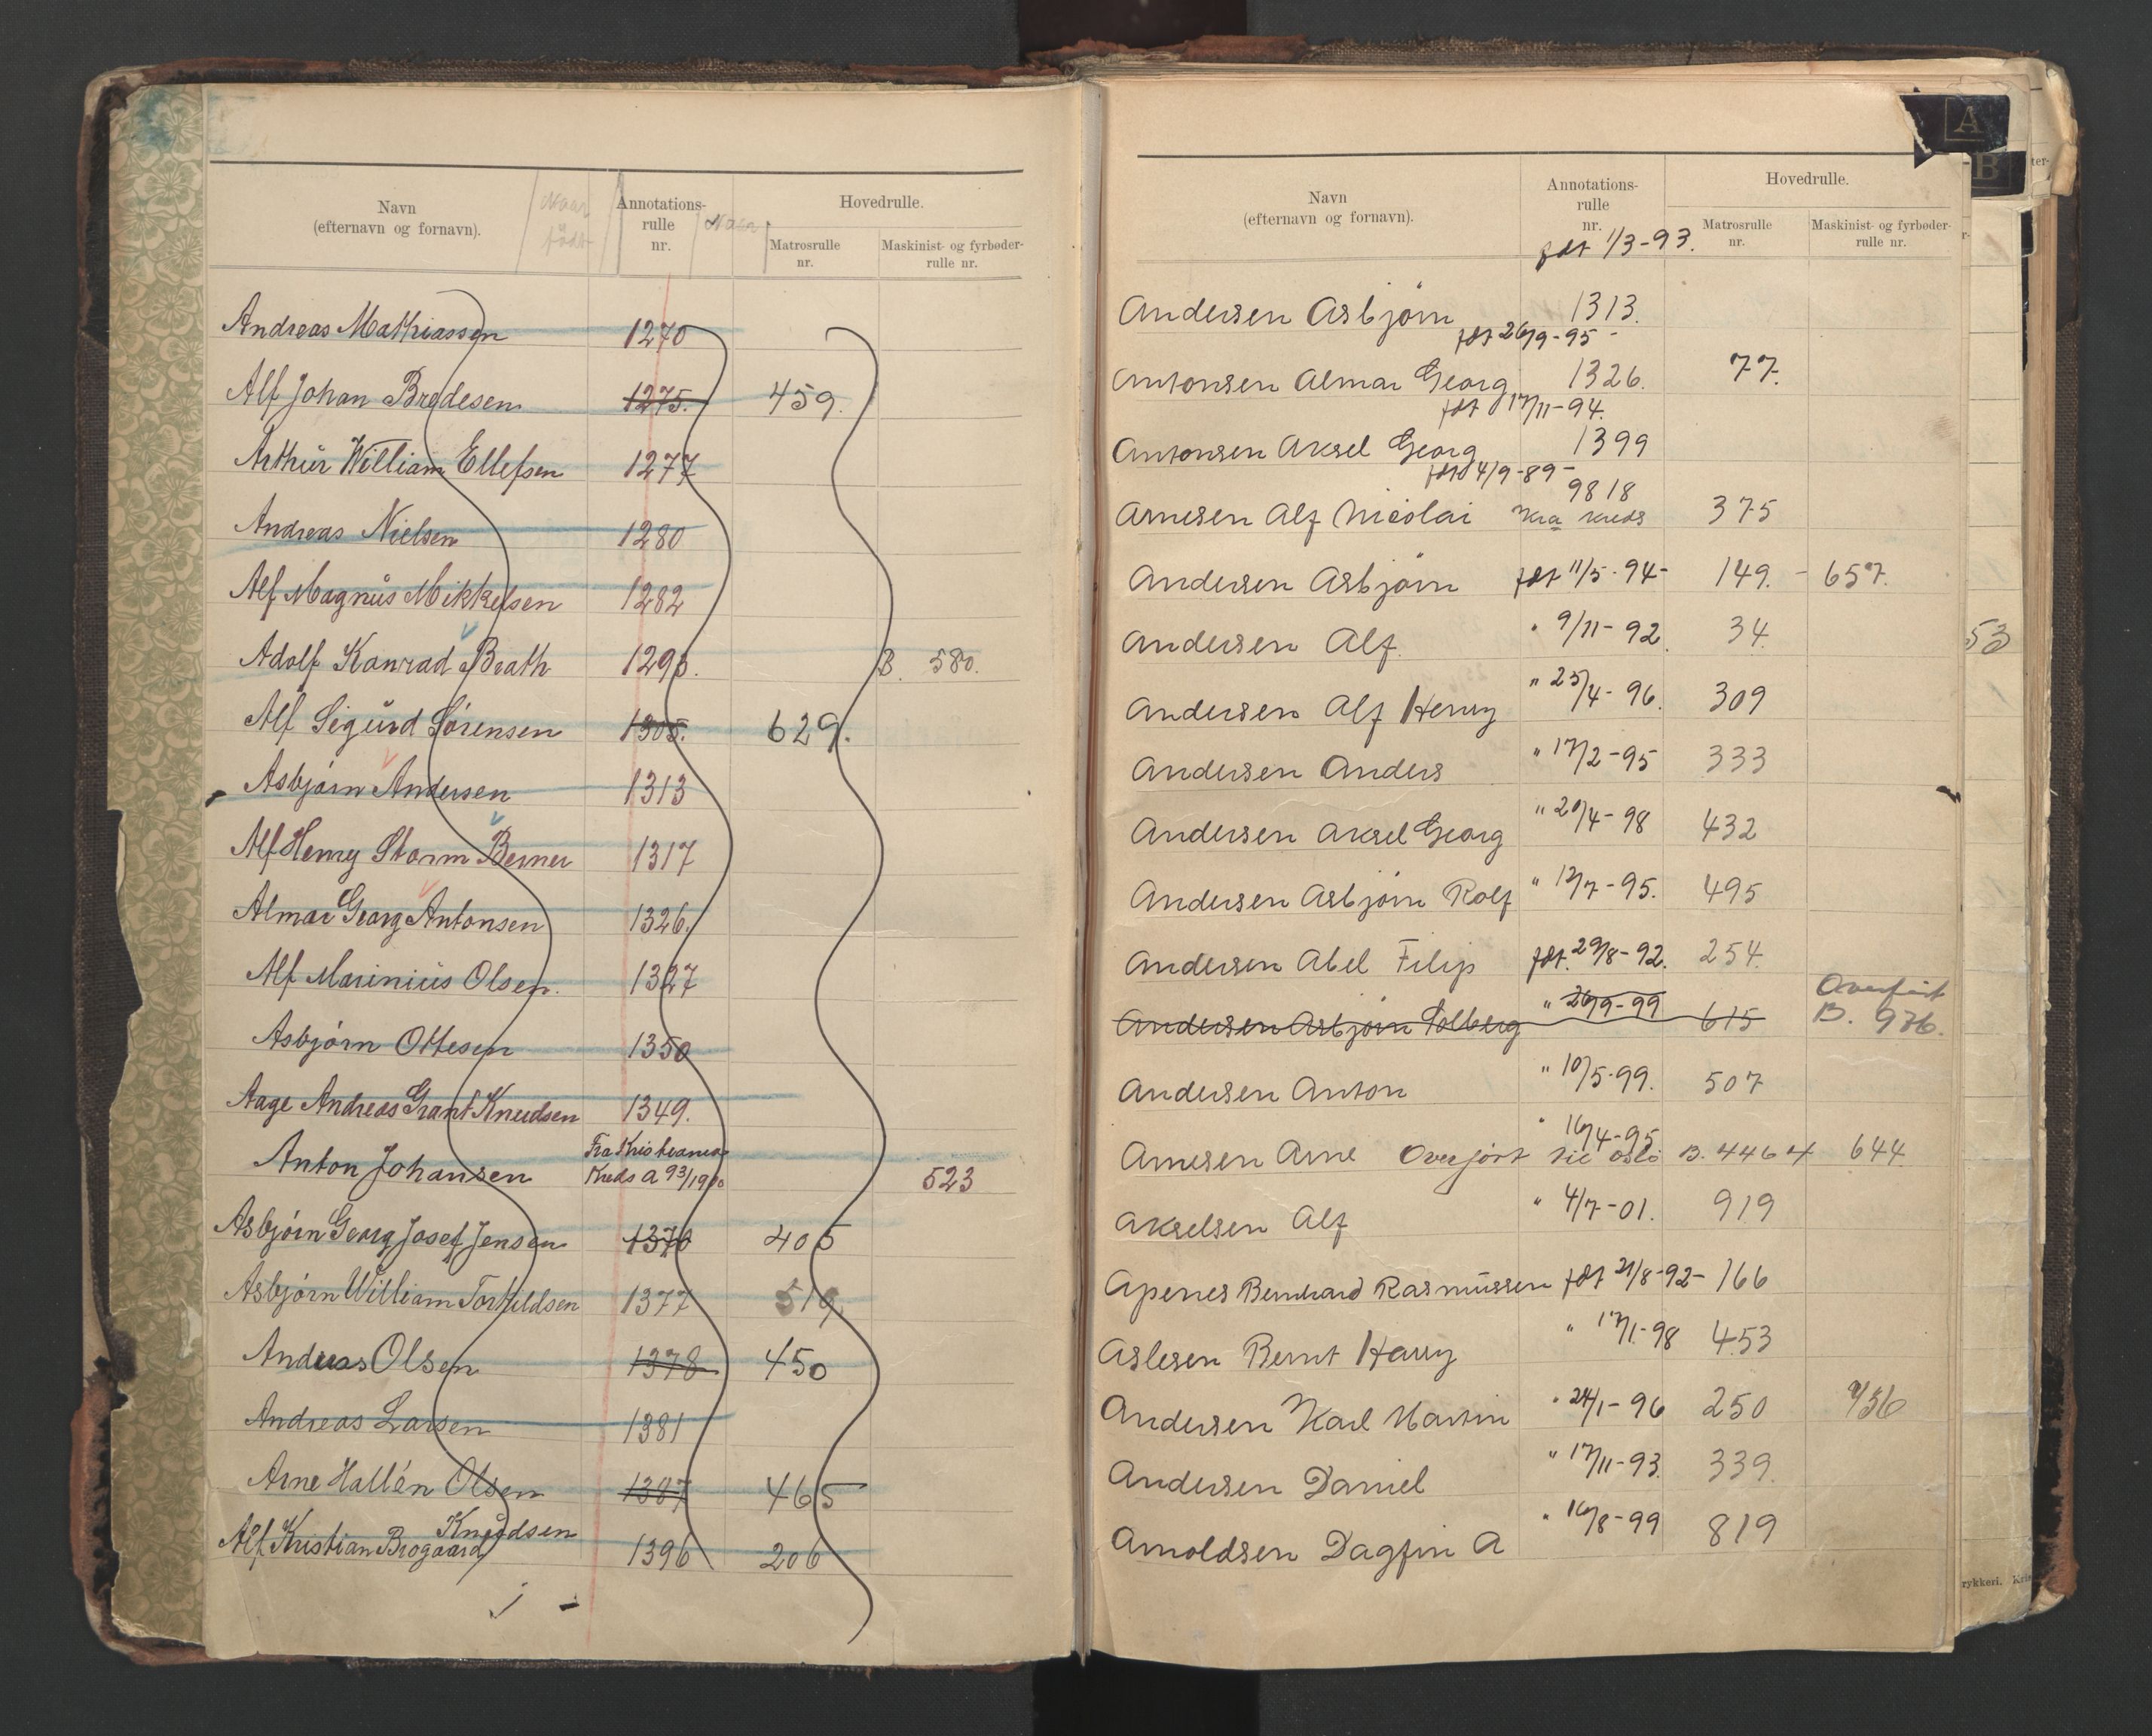 Navn
(efternavn og fornavn).
Naar
født
Annotations-
rulle
nr.
Hovedrulle.
Matrosrulle
nr.
Maskinist- og fyrbøder-
rulle nr.
Andreas Mathiassen 1270
Alf Johan Bredesen 1275. 459.
Arthur William Ellefsen 1277
Andreas Nielsen 1280
Alf Magnus Mikkelsen 1282
Adolf Konrad Brath 1293. B. 580.
Alf Sigurd Sørensen 1305. 629.
Asbjørn Andersen 1313
Alf Henry Storm Berner 1317
Almar Georg Antonsen 1326.
Alf Marinius Olsen. 1327
Asbjørn Ottesen 1350
Aage Andreas Grant Knudsen 1349.
Fra Kristiania
Anton Johansen Kreds A 93/1910 523
Asbjørn Georg Josef Jensen 1370 405
Asbjørn William Torkildsen 1377 519.
Andreas Olsen 1378 450
Andreas Larsen 1381
Arne Hallén Olsen 1387 465
Knudsen
Alf Kristian Brogaard 1396 206
A
B
Navn
(efternavn og fornavn).
Annotations-
rulle
nr.
Hovedrulle.
Matrosrulle
nr.
Maskinist- og fyrbøder-
rulle nr.
fdt 1/3-93.
Andersen Asbjørn 1313.
fdt 26/9-95-
Antonsen Almar Georg 1326. 77.
fdt 17/11-94.
Antonsen Aksel Georg 1399
fdt 4/9-89-
9818
Arnesen Alf Nicolai Kra kreds 375
Andersen Asbjørn fdt 11/5-94- 149. - 657.
Andersen Alf. " 9/11-92. 34.
Andersen Alf Henry " 25/4-96. 309
Andersen Anders " 17/2-95 333
Andersen Aksel Georg " 20/4-98 432
Andersen Asbjørn Rolf " 12/7-95. 495
Andersen Abel Filip fdt. 29/8-92. 254.
Overført
Andersen Asbjørn Solberg " 26/9-99 615 B. 936.
Andersen Anton " 10/5-99. 507
" 16/4-95
Arnesen Arne Overført til Oslo B. 4464 644.
Akselsen Alf " 4/7-01. 919
Apenes Bernhard Rasmussen fdt 21/8-92- 166
Aslesen Bernt Harry " 17/1-98 453
Andersen Karl Martin " 24/1-96 250 736
Andersen Daniel " 17/11-93. 339.
Arnoldsen Dagfin A " 16/8-99 819
53
ter-
rykkeri.